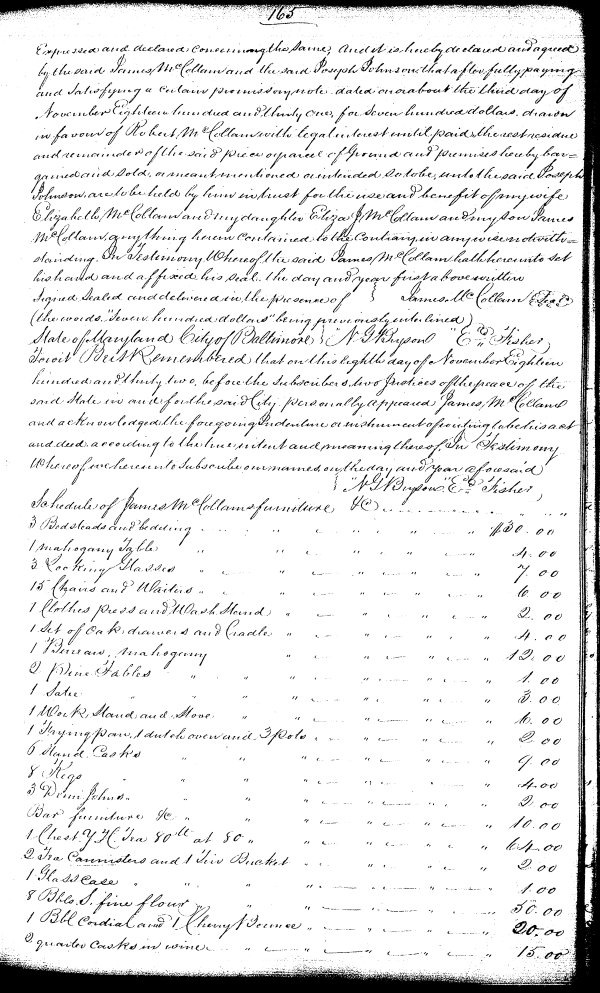 165
Expressed and declared concerning the same, And it is hereby declared and agreed
by the said James McCollam and the said Joseph Johnson that after fully paying
and satisfying a certain promissory note dated on or about the third day of
November Eighteen hundred and thirty one, for Seven hundred dollars drawn
in favour of Robert McCollam with legal interest until paid the rest residue
and remainder of the said piece or parcel of Ground and premises hereby bar=
gained and sold, or meant mentioned or intended so to be, unto the said Joseph
Johnson, are to be held by him in trust for the use and benefit of my wife
Elizabeth McCollam and my daughter Eliza J. McCollam and my son James
McCollam, anything herein contained to the Contrary in any wise notwith=
standing. In Testimony Whereof the said James McCollam hath hereunto set
his hand and affixed his seal the day and year first above written
Signed Sealed and delivered in the presence of } James McCollam (Seal)
(the words "Seven hundred dollars" being previously interlined)
State of Maryland City of Baltimore } "N G Bryson" "Ed. Fisher,
To wit Be it Remembered that on this eighth day of November Eighteen
hundred and thirty two, before the Subscribers two Justices of the peace of the
said State in and for the said City personally appeared James McCollam
and acknowledged the foregoing Indenture or instrument of writing to be his act
and deed according to the true intent and meaning thereof. In Testimony
Whereof we hereunto Subscribe our names on the day and year aforesaid
N G Bryson "Ed. Fisher,
Schedule of James McCollams furniture &c
3 Bedsteads and bedding $30.00
1 mahogany Table 4.00
3 Looking Glasses 7.00
15 Chairs and Waiters 6.00
1 Clothes press and Wash Stand 2.00
1 Set of Oak drawers and Cradle 4.00
1 Bureau, mahogany 12.00
2 Pine Tables 1.00
1 3.00
1 Work Stand and Stove 6.00
1 Frying pan, 1 dutch oven and 3 pots 2.00
6 Stand Casks 9.00
8 Kegs 4.00
3 Demi Johns 2.00
Bar furniture &c 10.00
1 Chest Y H Tea 80 lb at 80 64.00
2 Tea Cannisters and 1 Tin Bucket 2.00
1 Glass case 1.00
8 Bbls S. fine flour 50.00
1 Bbl Cordial and 1 Cherry Bounce 20.00
2 quarter casks in wine 15.00